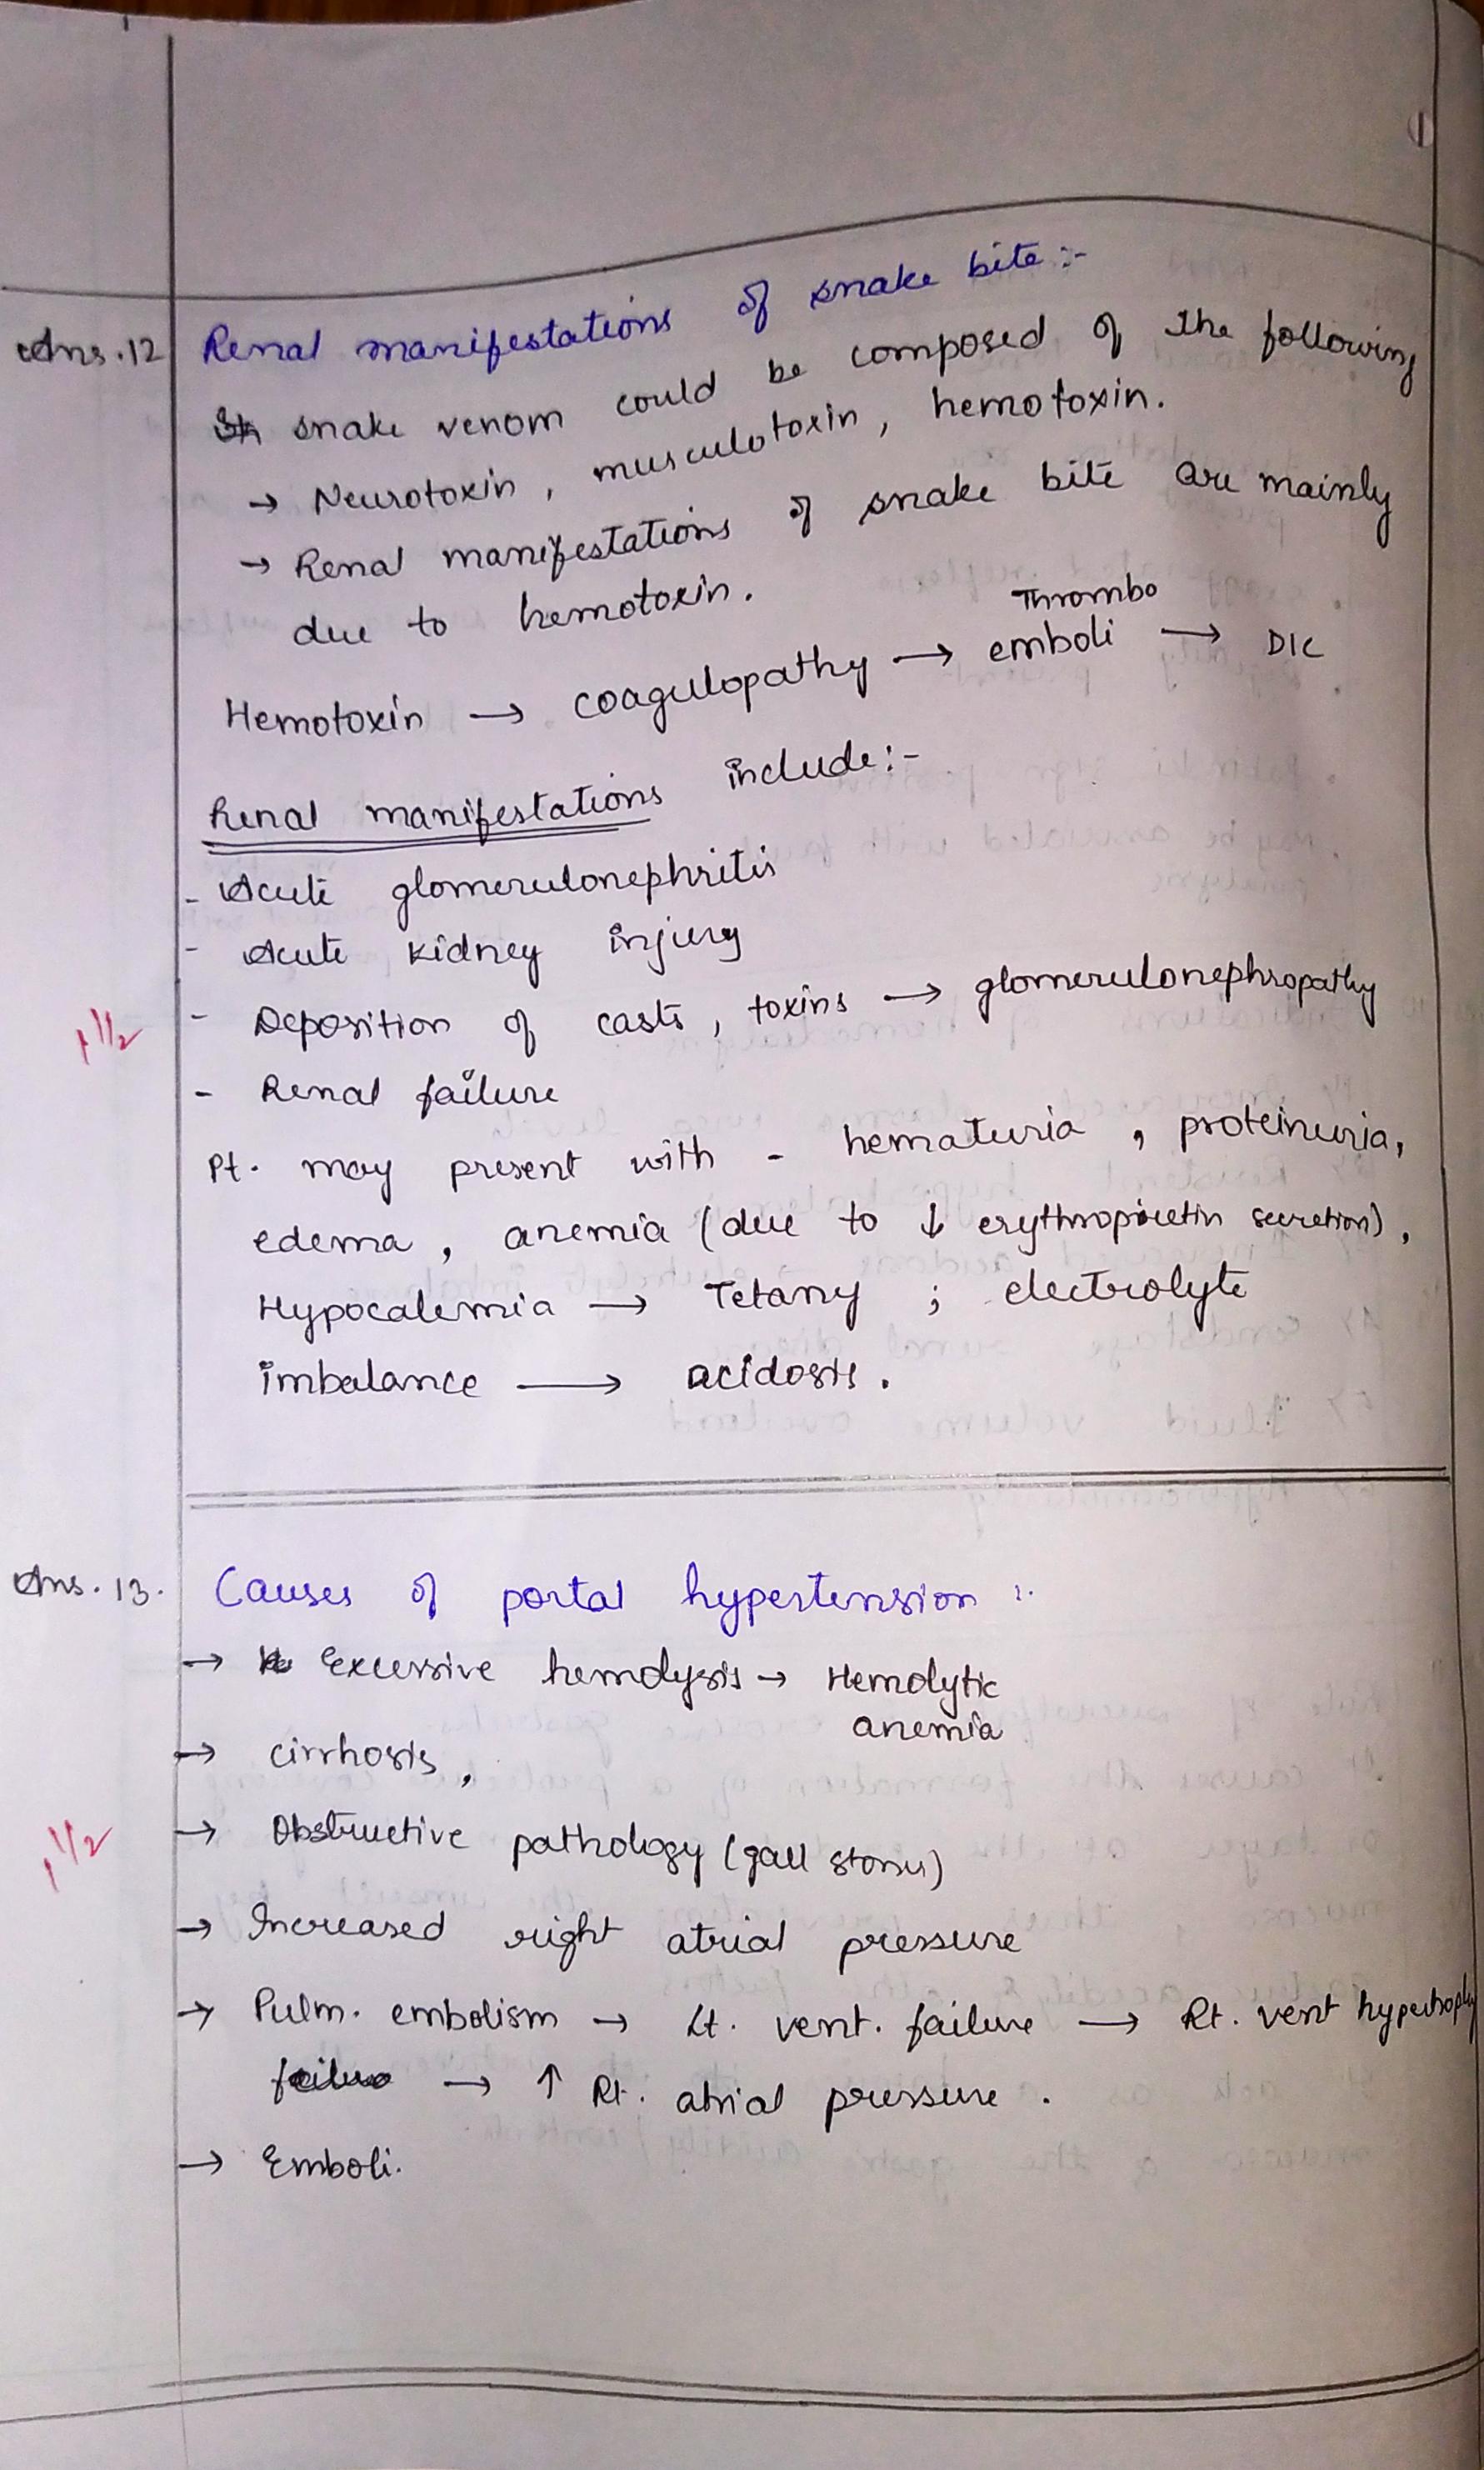 Ans.12 Renal manifestations of snake bite :-
snake venom could be composed of the following
→ Neurotoxin, musculotoxin, hemotoxin.
→ Renal manifestations of snake bite are mainly
due to hemotoxin.
Hemotoxin → coagulopathy → Thrombo emboli → DIC
Renal manifestations include :-
- Acute glomerulonephritis
- Acute kidney injury
- Deposition of casts, toxins → glomerulonephropathy
1 1/2
- Renal failure
Pt. may present with - hematuria, proteinuria,
edema, anemia (due to ↓ erythropoietin secretion),
Hypocalemia → Tetany ; electrolyte
imbalance → acidosis.
Ans. 13. Causes of portal hypertension :-
→ Excessive hemolysis → Hemolytic
anemia
→ cirrhosis,
→ Obstructive pathology (gall stones)
1 1/2
→ Increased right atrial pressure
→ Pulm. embolism → Lt. vent. failure → Rt. vent hypertrophy
failure → ↑ Rt. atrial pressure.
→ Emboli.